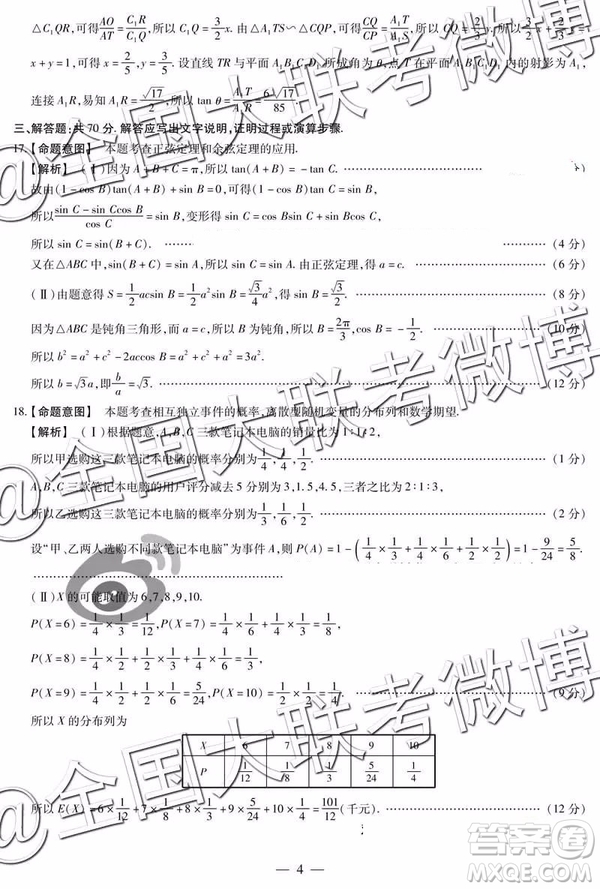 △C₁QR,可得AO/AT=C₁R/C₁Q,所以C₁Q=3/2x.由△A₁TS∽△CQP,可得CQ/CP=A₁T/A₁S
x+y=1,可得x=2/5,y=3/5.设直线TR与平面A₁B₁C₁D₁所成角为θ,点T在平面 内的射影为A₁,
连接A₁R,易知A₁R=√17/2,所以tan θ=A₁T/A₁R=6√17/85.
三、解答题:共70分.解答应写出文字说明,证明过程或演算步骤.
17.【命题意图】 本题考查正弦定理和余弦定理的应用.
【解析】 (Ⅰ)因为A+B+C=π,所以tan(A+B)=-tan C.
故由(1-cos B)tan(A+B)+sin B=0,可得(1-cos B)tan C=sin B,
所以(sin C-sin Ccos B)/cos C=sin B,变形得sin C=cos Bsin C+sin Bcos C,
所以sin C=sin(B+C). (4分)
又在△ABC中,sin(B+C)=sin A,所以sin C=sin A.由正弦定理,得a=c. (6分)
(Ⅱ)由题意得S=1/2acsin B=1/2a²sin B=√3/4a²,得sin B=√3/2. (8分)
因为△ABC是钝角三角形,而a=c,所以B为钝角,所以B=2π/3,cos B=-1/2. (10分)
所以b²=a²+c²-2accos B=a²+a²+a²=3a².
所以b=√3a,即b/a=√3. (12分)
18.【命题意图】 本题考查相互独立事件的概率,离散型随机变量的分布列和数学期望.
【解析】 (Ⅰ)根据题意,A,B,C三款笔记本电脑的销量比为1∶1∶2,
所以甲选购这三款笔记本电脑的概率分别为1/4,1/4,1/2. (1分)
A,B,C三款笔记本电脑的用户评分减去5分别为3,1.5,4.5,三者之比为2∶1∶3,
所以乙选购这三款笔记本电脑的概率分别为1/3,1/6,1/2. (2分)
设“甲、乙两人选购不同款笔记本电脑”为事件A,则P(A)=1-(1/4×1/3+1/4×1/6+1/2×1/2)=1-9/24=5/8.
(Ⅱ)X的可能取值为6,7,8,9,10.
P(X=6)=1/4×1/3=1/12,P(X=7)=
P(X=8)=1/4×
P(X=9)=
P(X=10)=1/2×1/2=1/4. (9分)
所以X的分布列为
X 6 7 8 9 10
P 1/12 1/8 5/24 1/4
所以E(X)=6×1/12+7×
+8×
+9×5/24+10×1/4=101/12(千元). (12分)
— 4 —
@全国大联考微博
答案圈